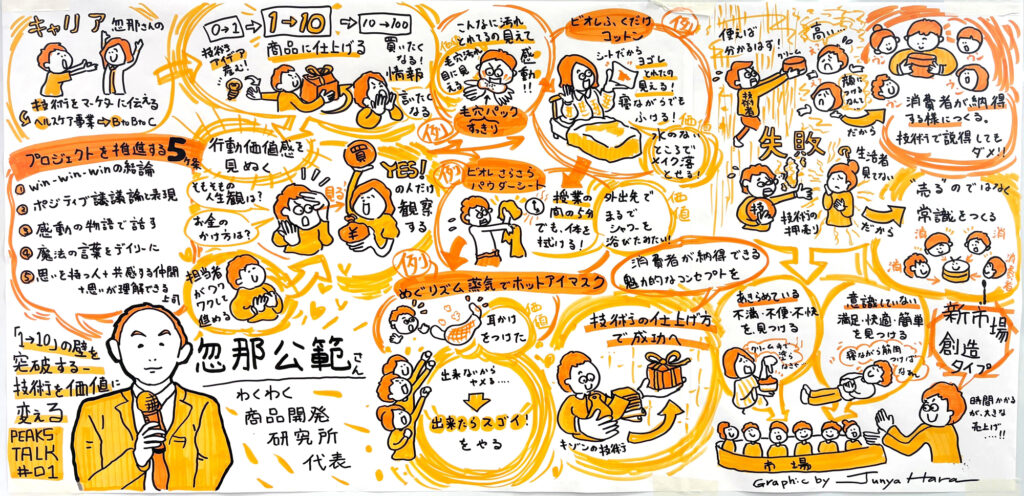 キャリア
忽那さんの
技術をマーケターに伝える
ヘルスケア事業→BtoBtoC
0→1
1→10
10→100
商品に仕上げる
技術を
アイデア
産む!
買いたく
なる!
情報
言いたく
なる
こんなに汚れ
とれてるの見えて
毛穴汚れ
目に見える
感動!!
例)
毛穴パック
すっきり
ビオレふくだけ
コットン
例)
シートだから
ヨゴレ
とれたの
見える!
寝ながらでも
ふける!
水のない
ところで
メイク落
とせる!
価値
使えば
分かるはず!
クリーム
技術者
高い…
顔に
つけるなんて
だから
消費者が納得
する様につくる。
技術で説得しても
ダメ!!
失敗
技
技術の
押売り
生活者
見てない
だから
"売る"のではなく
常識をつくる
消
消
消
消費者
プロジェクトを推進する5ヶ条
① win-win-winの結論
② ポジティブ議論と表現
③ 感動の物語で話す
④ 魔法の言葉をデイリーに
⑤ 思いを持つ人+共感する仲間
+思いが理解できる
上司
行動価値感を
見ぬく
そもそもの
人生観は?
お金の
かけ方は?
担当者
がワク
ワクして
進める
買
見る
YES!
の人だけ
観察
する
¥
例)
ビオレさらさら
パウダーシート
授業の
間の5分
でも、体を
拭ける!
外出先で
まるで
シャワーを
浴びたみたい!
価値
例)
めぐりズム蒸気でホットアイマスク
耳かけ
をつけた
価値
出来ないから
ヤメる…
出来たらスゴイ!
をやる
消費者が納得できる
魅力的なコンセプトを
技術の仕上げ方
で成功へ
キゾンの技術
あきらめている
不満・不便・不快
を見つける
クリーム手で
塗らなきゃ
意識していない
満足・快適・簡単
を見つける
寝ながら筋肉
つけば
なぁん
新市場
創造
タイプ
時間かかる
が、大きな
売上げ
…!!
市場
「1→10」の壁を
突破する-
技術を価値に
変える
PEAKS
TALK
#01
忽那公範さん
わくわく
商品開発
研究所
代表
Graphic by Junya Hara